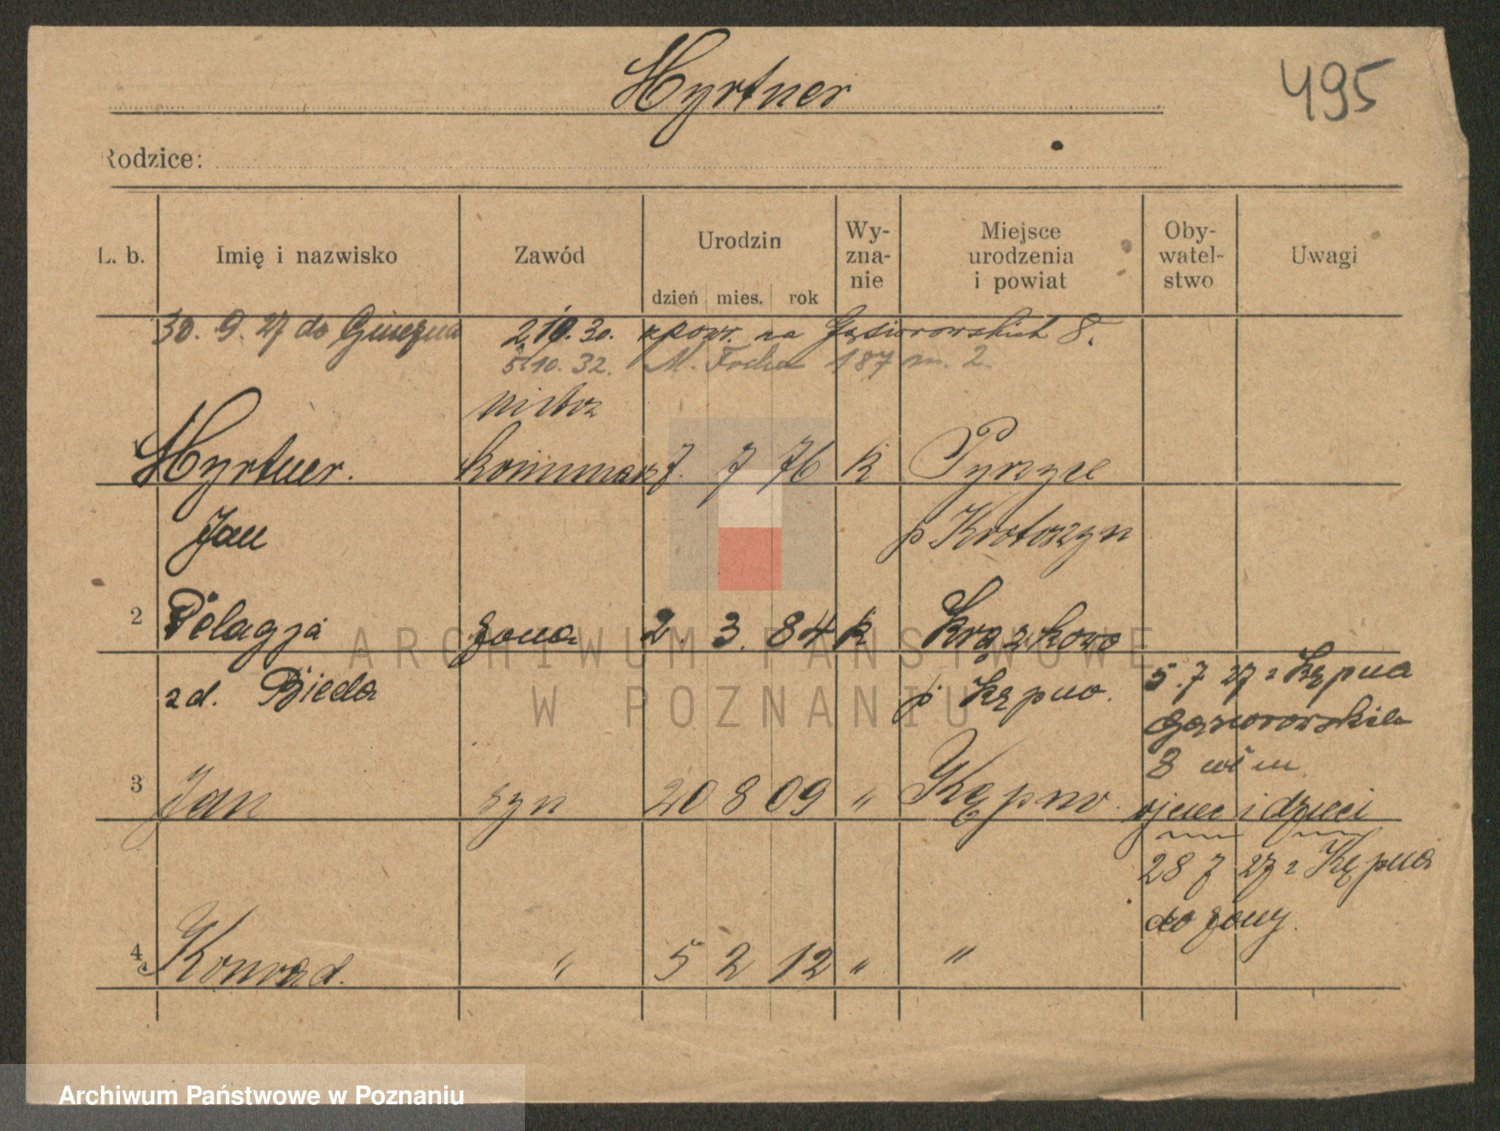 Hyrtner
495
Rodzice:
L. b. Imię i nazwisko Zawód Urodzin dzień mies. rok Wy-zna-nie Miejsce urodzenia i powiat Oby-watel-stwo Uwagi
30. 9. 27 do Gniezna 2.10.30. z powr. na Gąsiorowskich 8.
5/10. 32. M. Focha 187 m. 2.
1 Hyrtner. 7. 7 76 k
Jan p Krotoszyn
2 Pelagja żona 2. 3. 84 k Krążkowo
zd. Bieda p. Kępno. 5. 7 27 z Kępna
Gąsiorowskich
8
3 Jan syn 20 8 09 " Kępno. ojciec i dzieci
28 7 27 z Kępna
do żony.
4 Konrad. " 5 2 12 " "
ARCHIWUM PAŃSTWOWE
W POZNANIU
Archiwum Państwowe w Poznaniu